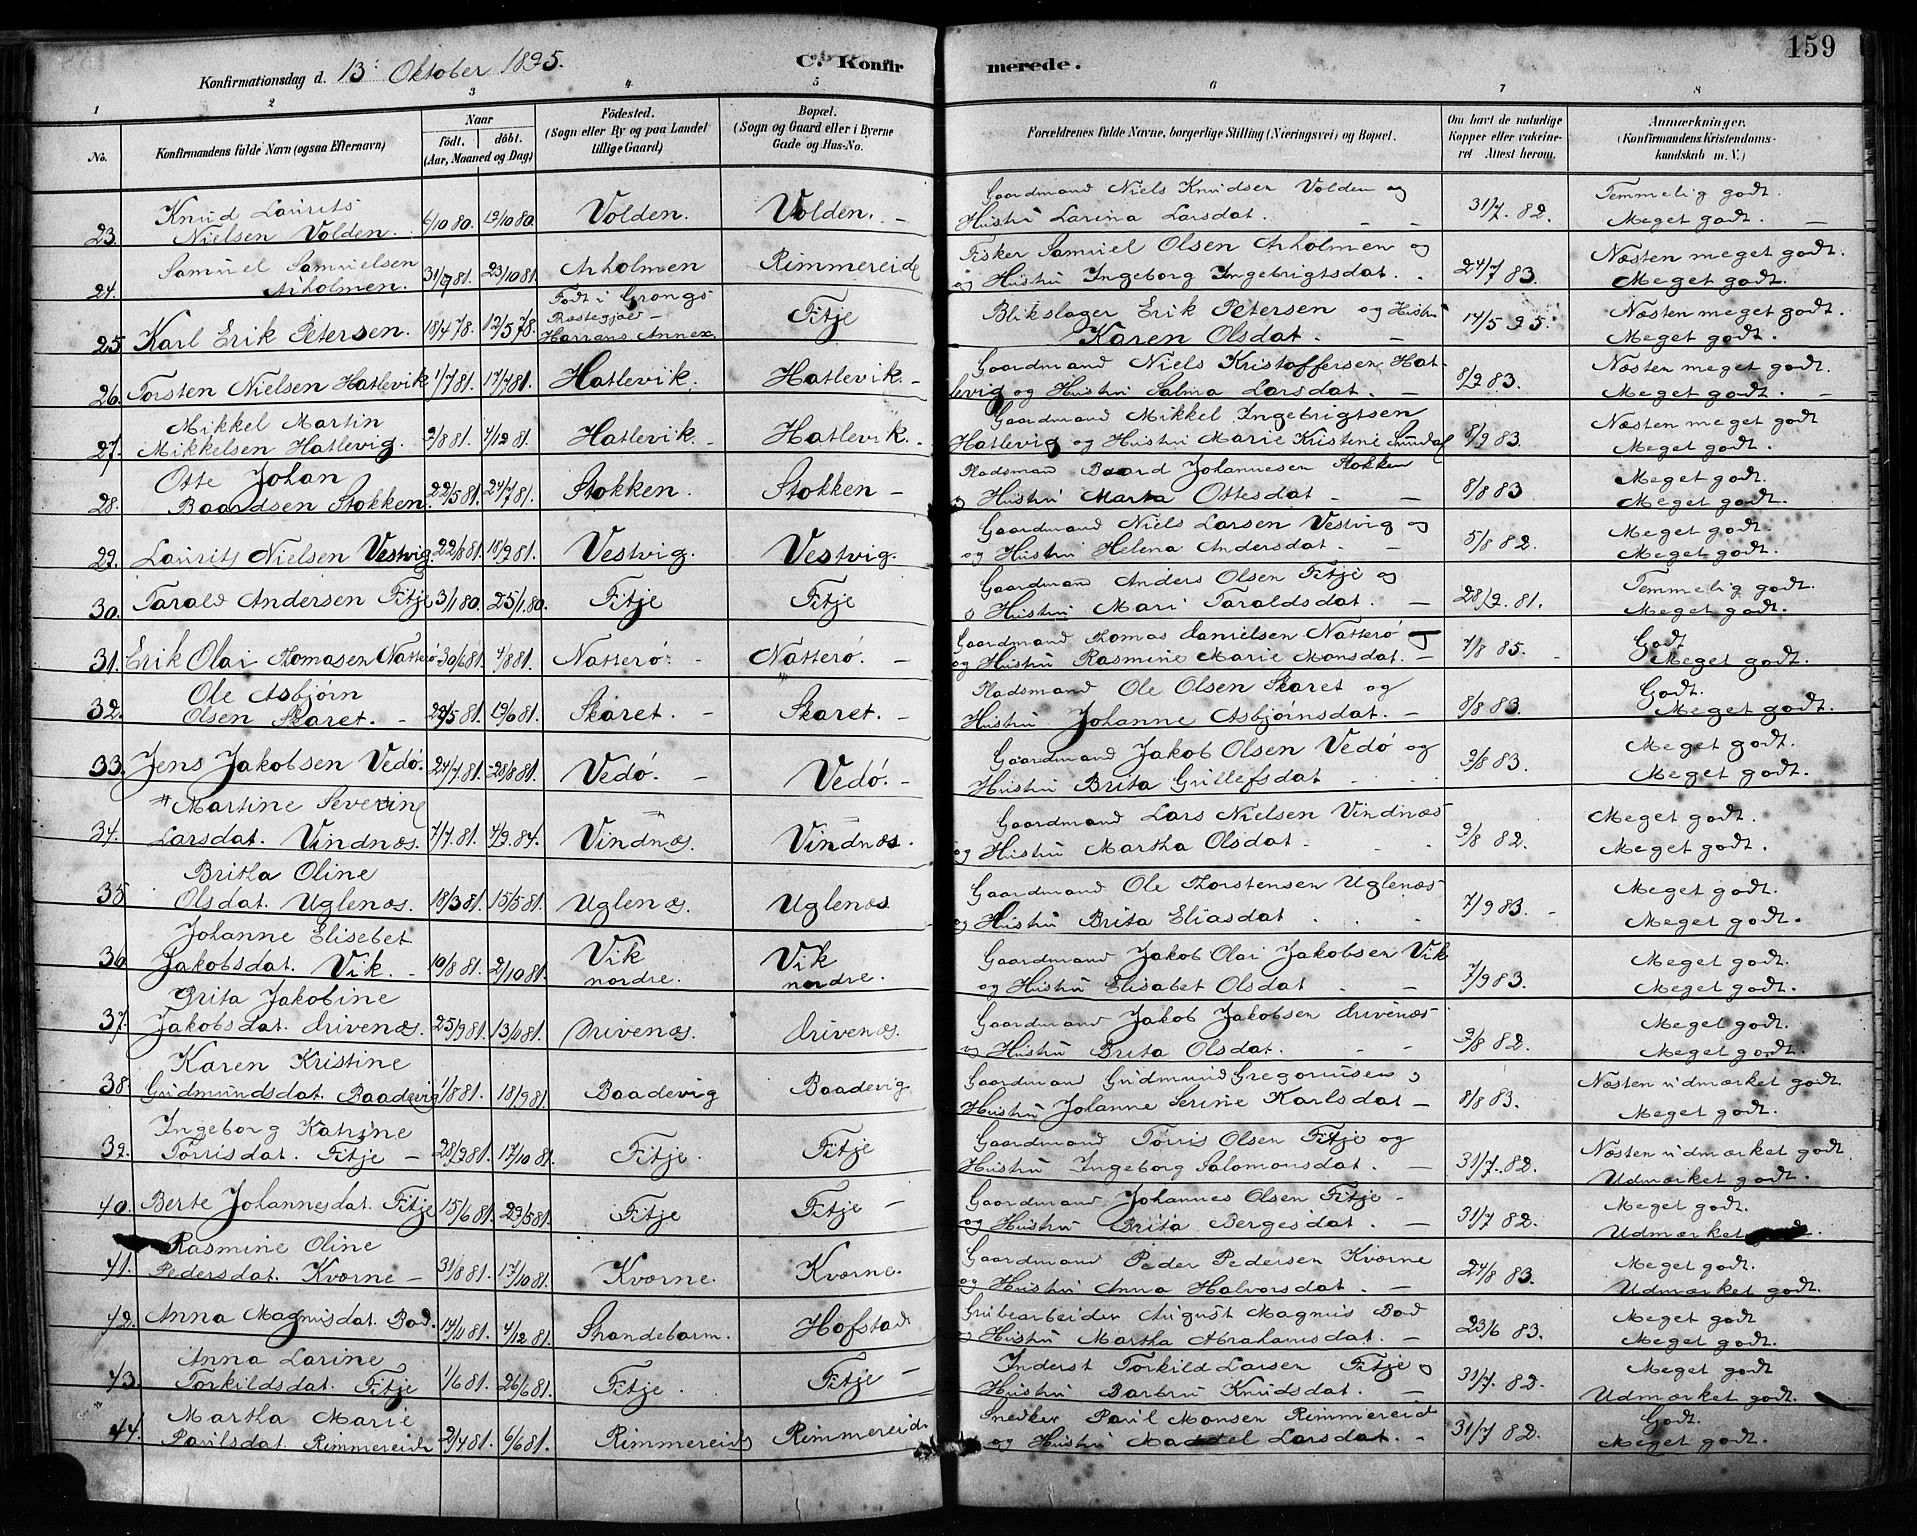 159
Konfirmationsdag d. 13. Oktober 1895. C. Konfirmerede.
1 2 3 4 5 6 7 8
No. Konfirmandens fulde Navn (ogsaa Efternavn) Naar født, døbt. (Aar, Maaned og Dag) Fødested. (Sogn eller By og paa Landet tillige Gaard) Bopæl. (Sogn og Gaard eller i Byerne Gade og Hus-No. Forældrenes fulde Navne, borgerlige Stilling (Næringsvei) og Bopæl. Om havt de naturlige Kopper eller vakcineret Attest herom. Anmærkninger, (Konfirmandens Kristendomskundskab m. V.)
23. Knud Laurits Nielsen Volden. 6/10 80. Volden. Volden. Gaardmand Niels Knudsen Volden og Hustru Larina Larsdat. 31/7. 82. Temmelig godt. Meget godt.
24. Samuel Samuelsen Arholmen. 31/7 81. 23/10 81. Arholmen Rimmereide Fisker Samuel Olsen Arholmen og og Hustru Ingeborg Ingebrigtsdat. 24/7 83. Næsten meget godt. Meget godt.
25 Karl Erik Petersen. 18/4 78. 12/5 78. Født i Grongs Præstegjæld Harrans Annex. Fitje Blikslager Erik Petersen og Hustru Karen Olsdat. 14/5 95. Næsten meget godt. Meget godt.
26. Torsten Nielsen Hatlevik 1/7 81. 17/7 81. Hatlevik. Hatlevik. Gaardmand Niels Kristoffersen Hatlevig og Hustru Salma Larsdat. 8/9 83. Næsten meget godt. Meget godt.
27. Mikkel Martin Mikkelsen Hatlevig. 4/12 81. Hatlevik. Hatlevik. Gaardmand Mikkel Ingebrigtsen Hatlevig og Hustru Marie Kristine 8/9 83. Næsten meget godt Meget godt.
28. Otte Johan Baardsen Stokken. 22/5 81. 24/7 81. Stokken. Stokken Pladsman Baard Johannesen Stokken og Hustru Marta Ottesdat 8/8 83 Meget godt. Meget godt.
29. Laurits Nielsen Vestvig. 22/8 81. 18/9 81. Vestvig. Vestvig. Gaardmand Niels Larsen Vestvig og og Hustru Helena Andersdat. 5/8 82. Meget godt. Meget godt.
30. Tarald Andersen Fitje 3/1 80. 25/1 80. Fitje Fitje Gaardman Anders Olsen Fitje og o Hustru Mari Taraldsdat. 28/9. 81. Temmelig godt. Meget godt.
31. Erik Olai Thomasen Natterø 30/6 81. 4/8 81. Natterø. Natterø. Gaardmand Thomas Danielsen Natterø og Hustru Rasmine Marie Monsdat. 7/8 85. Godt Meget godt.
32. Ole Asbjørn Olsen Skaret. 19/6 81. Skaret. Skaret. Pladsmand Ole Olsen Skaret og Hustru Johanne Asbjørnsdat. 8/8 83. Godt. Meget godt.
33. Jens Jakobsen Vedø. 24/7 81. 28/8 81. Vedø. Vedø. Gaardmand Jakob Olsen Vedø og Hustru Brita Gullefsdat 9/8 83. Meget godt. Meget godt.
34. Martine Severine Larsdat. Vindnæs. 7/7 81. Vindnæs. Vindnæs. Gaardmand Lars Nielsen Vindnæs og Hustru Martha Olsdat. 9/8 82. Meget godt. Meget godt.
35 Britha Oline Olsdat. Uglenæs. 18/3 81. 15/5 81. Uglenæs Uglenæs Gaardmand Ole Thorstensen Uglenæs og Hustru Brita Eliasdat 7/9 83. Meget godt. Meget godt.
36 Johanne Elisebet Jakobsdat. Vik. 19/8 81. 2/10 81. Vik nordre. Vik nordre. Gaardmand Jakob Olai Jakobsen Vik og Hustru Elisabet Olsdat 7/9 83. Meget godt. Meget godt.
37. Brita Jakobine Jakobsdat. Drivenæs. 25/9 81. 13/11 81. Drivenæs. Drivenæs. Gaardmand Jakob Jakobsen Drivenæs og Hustru Brita Olsdat. 9/8 82. Meget godt. Meget godt.
38. Karen Kristine Gudmundsdat. Baadevig 1/8 81. 18/9 81. Baadevig Baadevig Gaardmand Gudmund Gregoriusen og Hustru Johanne Serine Karlsdat 8/8 83. Næsten udmærket godt. Meget godt.
39. Ingeborg Katrine Tørrisdat. Fitje 28/9 81. 17/10 81. Fitje. Fitje Gaardmand Tørris Olsen Fitje og Hustru Ingeborg Salomonsdat. 31/7. 82. Næsten udmærket godt. Udmærket godt.
40. Berte Johannesdat. Fitje 15/6 81. Fitje Fitje Gaardmand Johannes Olsen Fitje og Hustru Brita Bergesdat. 31/7 82. Meget godt. Udmærket
41. Rasmine Oline Pedersdat. Kværne 31/8 81. 17/10 81. Kværne. Kværne. Gaardmand Peder Pedersen Kværne og Hustru Anna Halvorsdat. 24/8 83. Meget godt. Udmærket godt.
42. Anna Magnusdat. Bod. 14/11 81. 4/12 81. Strandebarm. Hofstad Grubearbeider August Magnus Bod og Hustru Martha Abrahamsdat. 23/6 83. Meget godt Meget godt.
43. Anna Larine Torkildsdat. Fitje 1/6 81. 26/6 81. Fitje. Fitje Inderst Torkild Larsen Fitje og Hustru Barbru Knudsdat. 31/7. 82. Meget godt Udmærket godt.
44. Martha Marie Paulsdat. Rimmereide 2/4 81. 6/6 81. Rimmereide Rimmereide Snedker Paul Monsen Rimmereid og Hustru Larsdat. 31/7 82. Godt. Meget godt.